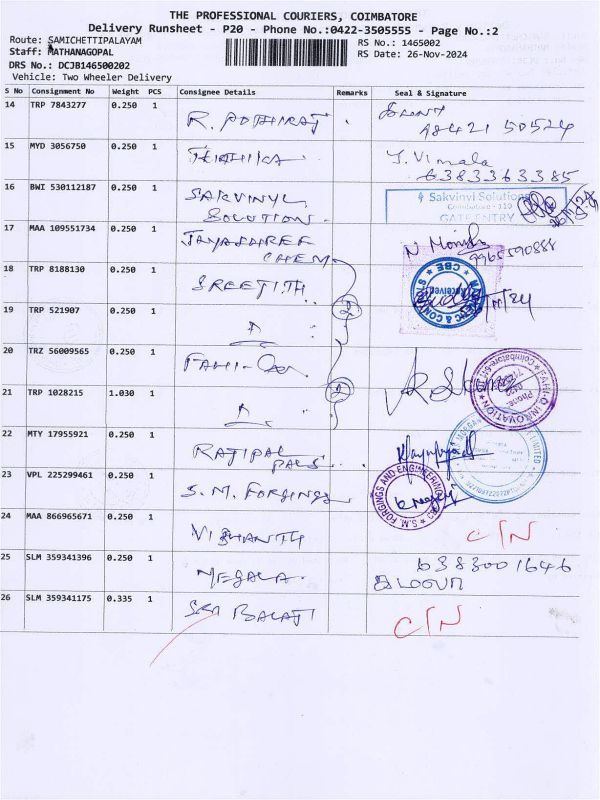 THE PROFESSIONAL COURIERS, COIMBATORE
Delivery Runsheet - P20 - Phone No.:0422-3505555 - Page No.:2
Route: SAMICHETTIPALAYAM
RS No.: 1465002
Staff: MATHANAGOPAL
RS Date: 26-Nov-2024
DRS No.: DCJB146500202
Vehicle: Two Wheeler Delivery
S No Consignment No Weight PCS Consignee Details Remarks Seal & Signature
14 TRP 7843277 0.250 1 R. POTHIRAJ
50524
15 MYD 3056750 0.250 1
J. Vimala
6383363385
16 BWI 530112187 0.250 1 SAKVINYL
SOLUTION
Sakvinyl Solutions
Coimbatore - 110
GATE ENTRY
17 MAA 109551734 0.250 1 JAYASHREE
CHEM
9965590888
18 TRP 8188130 0.250 1 SREEJITH
Received
CBE
19 TRP 521907 0.250 1
2
20 TRZ 56009565 0.250 1 FAHI-
21 TRP 1028215 1.030 1
2
FAHI-Q INNOVATION
Phone
22 MTY 17955921 0.250 1 RAJIPAL
LIMITED
23 VPL 225299461 0.250 1 S.M. FORGINGS
S.M. FORGINGS AND ENGINEERING
24 MAA 866965671 0.250 1
C/N
25 SLM 359341396 0.250 1 MEGALA
6383001646
26 SLM 359341175 0.335 1 SRI BALAJI
C/N